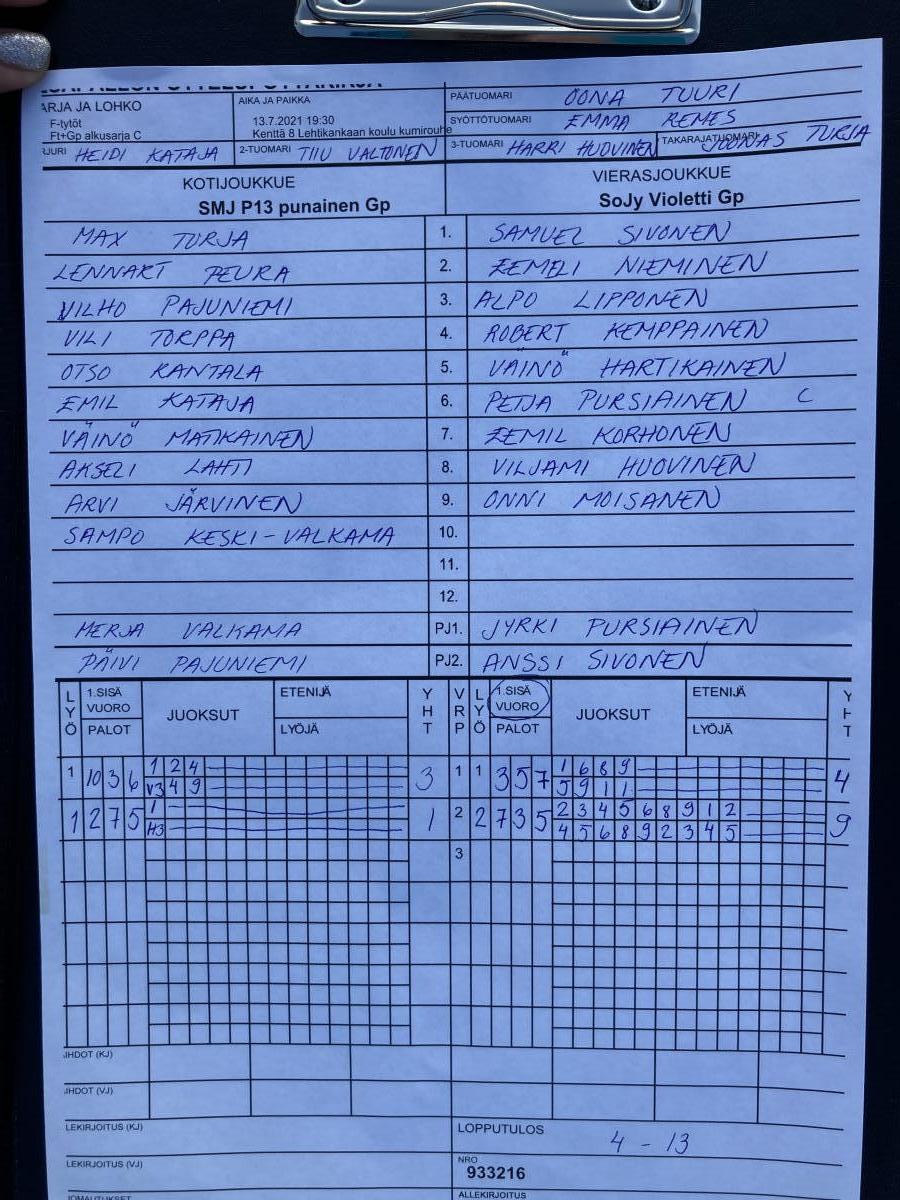 ARJA JA LOHKO
F-tytöt
Ft+Gp alkusarja C
AIKA JA PAIKKA
13.7.2021 19:30
Kenttä 8 Lehtikankaan koulu kumirouhe
PÄÄTUOMARI OONA TUURI
SYÖTTÖTUOMARI EMMA REMES
JURI HEIDI KATAJA 2-TUOMARI TIIU VALTONEN 3-TUOMARI HARRI HUOVINEN TAKARAJATUOMARI JOONAS TURJA
KOTIJOUKKUE VIERASJOUKKUE
SMJ P13 punainen Gp SoJy Violetti Gp
MAX TURJA 1. SAMUEL SIVONEN
LENNART PEURA 2. EEMELI NIEMINEN
VILHO PAJUNIEMI 3. ALPO LIPPONEN
VILI TORPPA 4. ROBERT KEMPPAINEN
OTSO KANTALA 5. VÄINÖ HARTIKAINEN
EMIL KATAJA 6. PETJA PURSIAINEN C
VÄINÖ MATIKAINEN 7. EEMIL KORHONEN
AKSELI LAHTI 8. VILJAMI HUOVINEN
ARVI JÄRVINEN 9. ONNI MOISANEN
SAMPO KESKI-VALKAMA 10.
11.
12.
MERJA VALKAMA PJ1. JYRKI PURSIAINEN
PÄIVI PAJUNIEMI PJ2. ANSSI SIVONEN
LYÖ 1.SISÄ VUORO PALOT JUOKSUT ETENIJÄ LYÖJÄ YHT VRP LYÖ 1.SISÄ VUORO PALOT JUOKSUT ETENIJÄ LYÖJÄ YHT
1 10 3 6 1 2 4 3 1 1 3 5 7 1 6 8 9 4
V3 4 9 5 9 1 1
1 2 7 5 1 1 2 2 7 3 5 2 3 4 5 6 8 9 1 2 9
H3 4 5 6 8 9 2 3 4 5
3
IHDOT (KJ)
IHDOT (VJ)
LEKIRJOITUS (KJ)
LOPPUTULOS 4 - 13
LEKIRJOITUS (VJ)
NRO
933216
ALLEKIRJOITUS